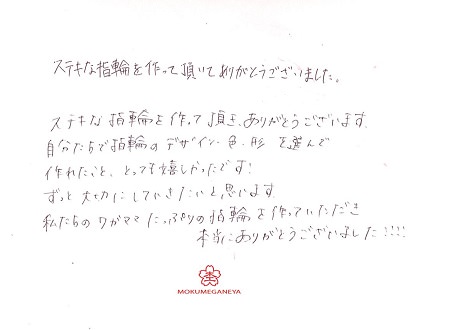 ステキな指輪を作って頂いてありがとうございました。
ステキな指輪を作って頂き、ありがとうございます。
自分たちで指輪のデザイン・色・形を選んで
作れたこと、とっても嬉しかったです!
ずっと大切にしていきたいと思います
私たちのワガママたっぷりの指輪を作っていただき
本当にありがとうございました!!!!
MOKUMEGANEYA